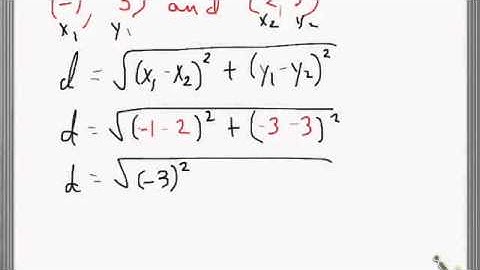 (-1, 3) and (2, 3)
x₁ y₁ x₂ y₂
d = √(x₁ - x₂)² + (y₁ - y₂)²
d = √(-1 - 2)² + (-3 - 3)²
d = √(-3)²